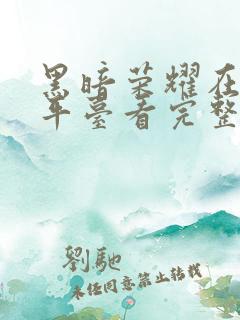 黑暗荣耀在
平臺看完整
劉馳
未经同意禁止转载